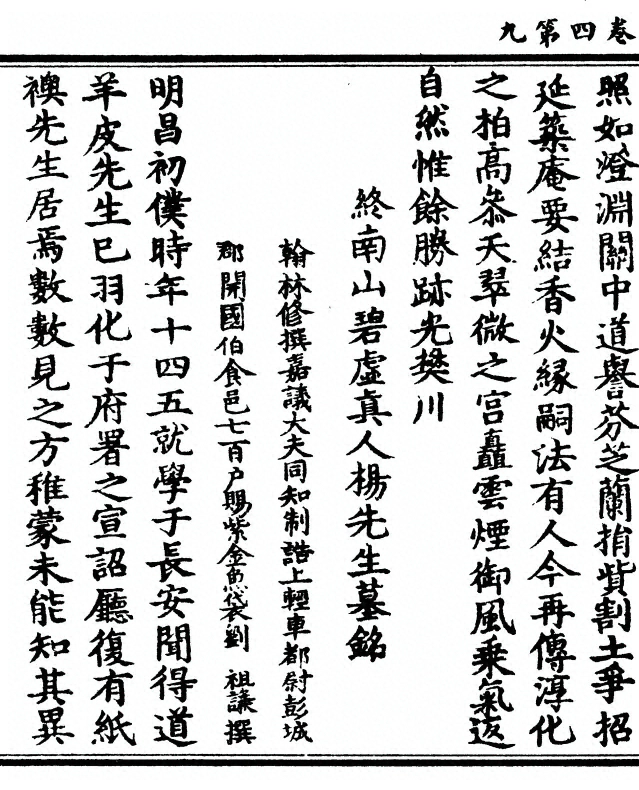 卷四第九
照如澄淵關中道譽芬芝蘭捐貲割土爭招
延築庵要結香火緣嗣法有人今再傳淳化
之柏高叅天翠微之宮矗雲煙御風乘氣返
自然惟餘勝跡光樊川
終南山碧虛真人楊先生墓銘
翰林修撰嘉議大夫同知制誥上輕車都尉彭城
郡開國伯食邑七百户賜紫金魚袋劉祖謙撰
明昌初僕時年十四五就學于長安聞得道
羊皮先生巳羽化于府署之宣詔廳復有紙
襖先生居焉數數見之方稚蒙未能知其異